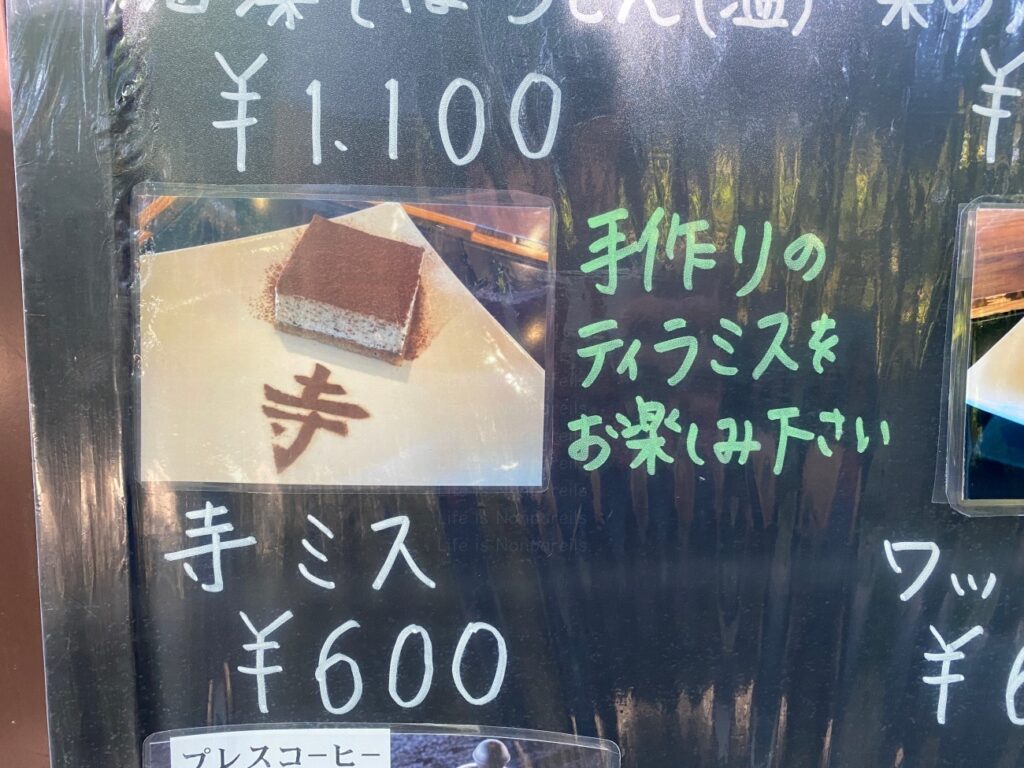 ¥1,100
¥
寺
手作りの
ティラミスを
お楽しみ下さい
Life is Nonpareils
Life is Nonpareils
寺ミス
¥600
ワッ
¥6
プレスコーヒー